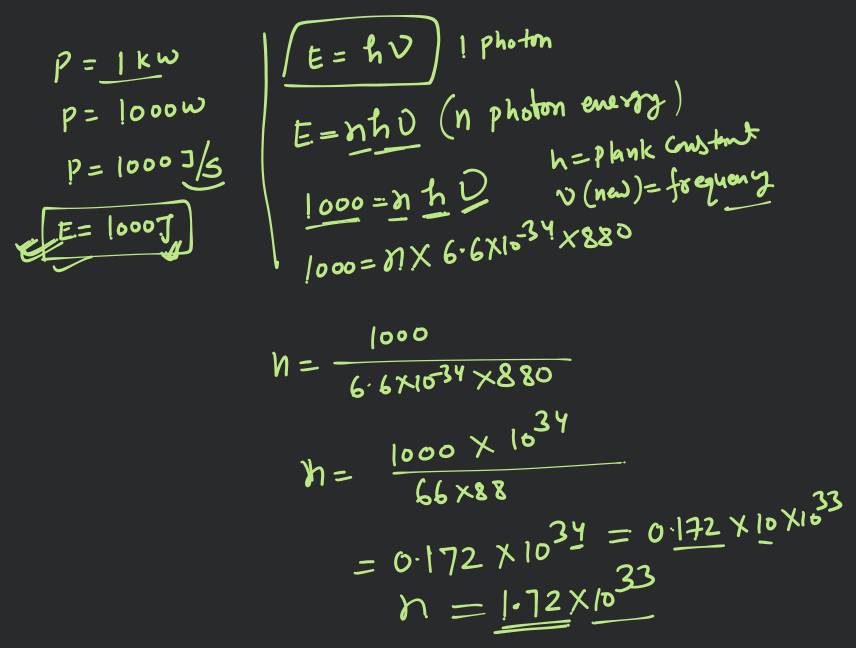 P = 1 kw
P = 1000w
P = 1000 J/s
E = 1000J
E = hν 1 photon
E = nhν (n photon energy)
h = plank constant
ν (new) = frequency
1000 = n h ν
1000 = n × 6.6×10^-34 × 880
n = 1000 / 6.6×10^-34 × 880
n = 1000 × 10^34 / 66×88
= 0.172 × 10^34 = 0.172 × 10 × 10^33
n = 1.72 × 10^33